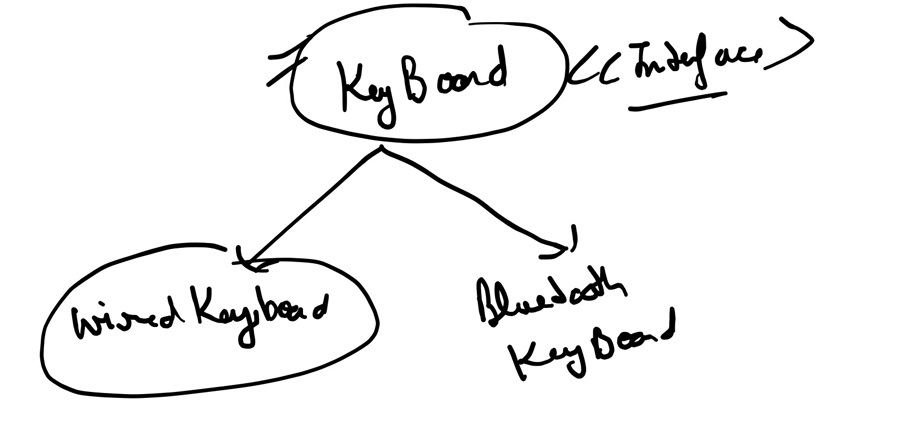 KeyBoard <<Interface>
Wired Keyboard
Bluetooth
KeyBoard